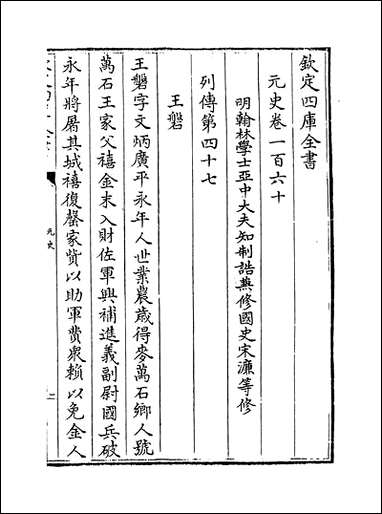 欽定四庫全書
元史卷一百六十
明翰林學士亞中大夫知制誥兼修國史宋濂等修
列傳第四十七
王磐
王磐字文炳廣平永年人世業農歲得麥萬石鄉人號
萬石王家父禧金末入財佐軍興補進義副尉國兵破
永年將屠其城禧復罄家貲以助軍費衆賴以免金人
元史